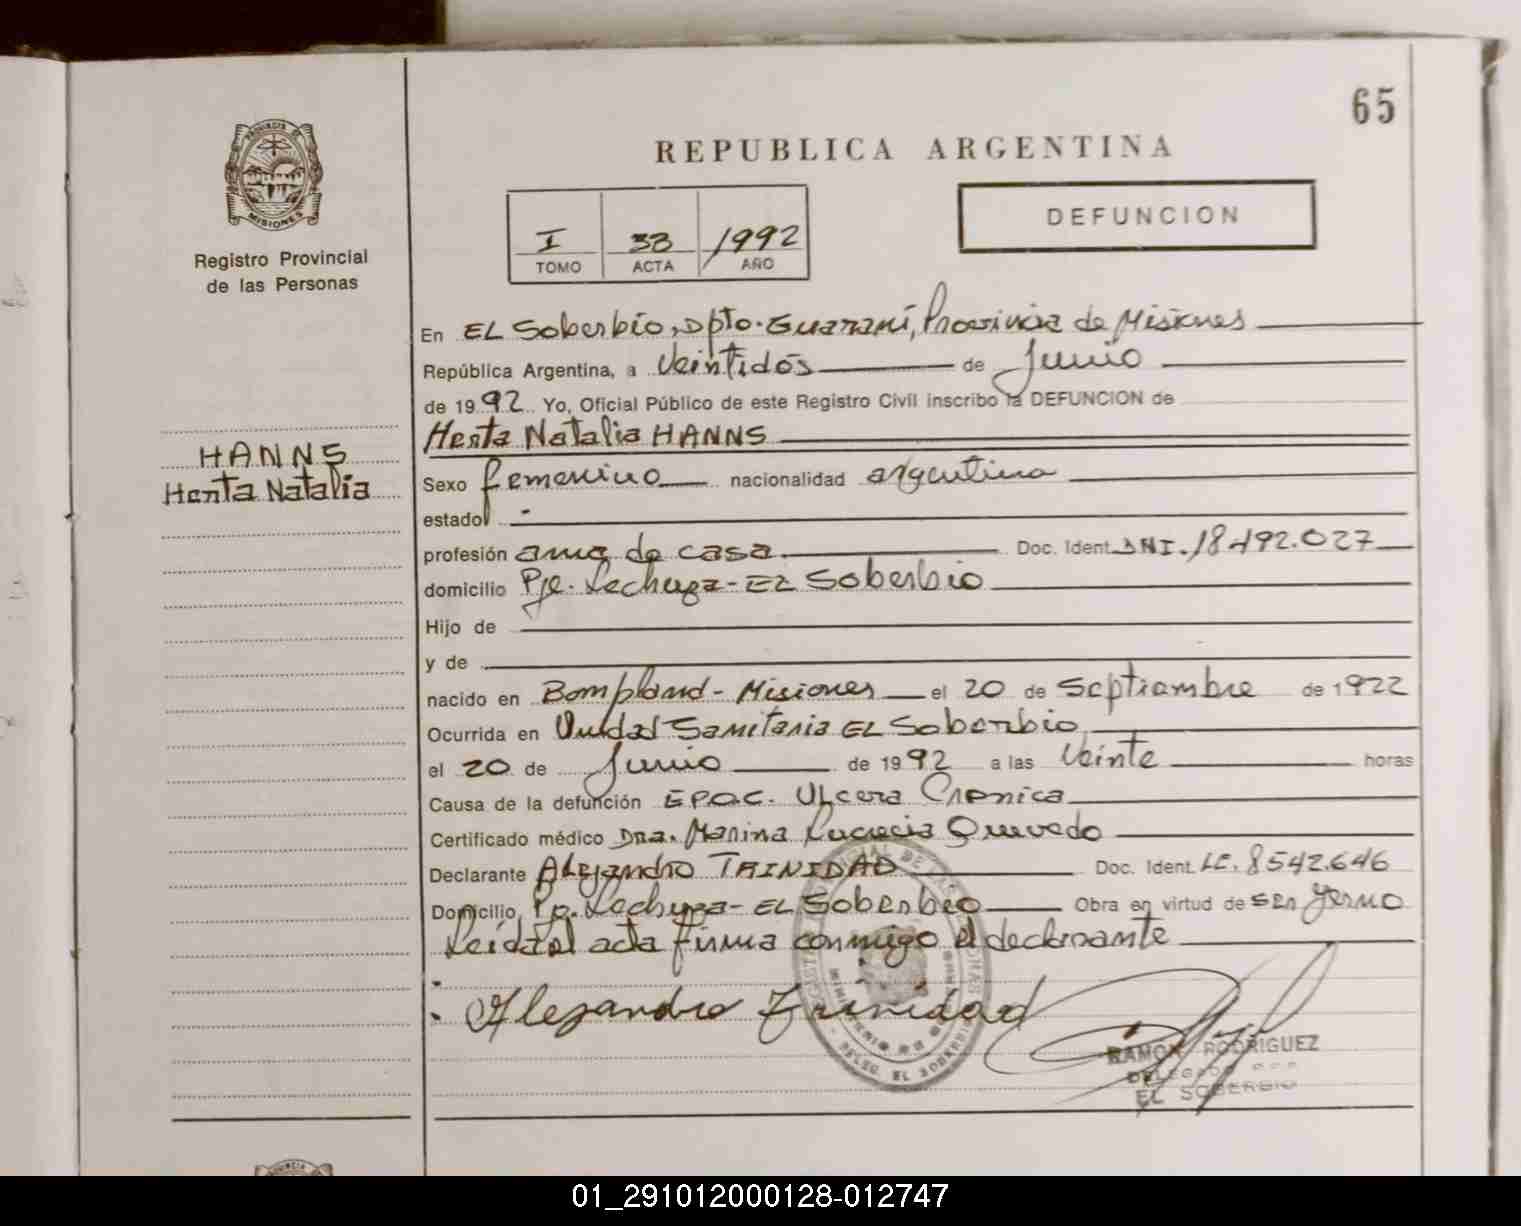 65
REPUBLICA ARGENTINA
PROVINCIA DE
MISIONES
Registro Provincial
de las Personas
I 33 1992
TOMO ACTA AÑO
DEFUNCION
HANNS
Herta Natalia
En EL Soberbio, Dpto. Guaraní, Provincia de Misiones
República Argentina, a Veintidós de Junio
de 1992 Yo, Oficial Público de este Registro Civil inscribo la DEFUNCION de
Herta Natalia HANNS
Sexo femenino nacionalidad argentina
estado -
profesión ama de casa Doc. Ident. DNI. 18.492.027
domicilio Pje. Lechuza - EL Soberbio
Hijo de
y de
nacido en Bompland - Misiones el 20 de Septiembre de 1922
Ocurrida en Unidad Sanitaria EL Soberbio
el 20 de Junio de 1992 a las Veinte horas
Causa de la defunción EPOC. Ulcera Cronica
Certificado médico Dra. Marina Lucrecia Quevedo
Declarante Alejandro TRINIDAD Doc. Ident. LE. 8542.646
Domicilio Pje. Lechuza - EL Soberbio Obra en virtud de ser Yerno
Leida el acta firma conmigo el declarante
Alejandro Trinidad
DELEG. EL SOBERBIO
RAMON RODRIGUEZ
DELEGADO
EL SOBERBIO
01_291012000128-012747